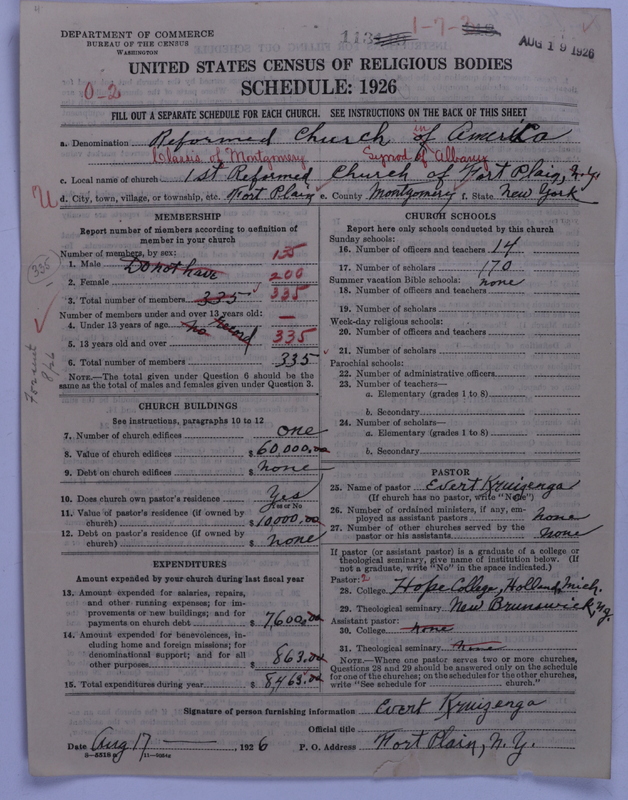 DEPARTMENT OF COMMERCE
BUREAU OF THE CENSUS
WASHINGTON
1-7-2
AUG 19 1926
UNITED STATES CENSUS OF RELIGIOUS BODIES
SCHEDULE: 1926
0-2
FILL OUT A SEPARATE SCHEDULE FOR EACH CHURCH. SEE INSTRUCTIONS ON THE BACK OF THIS SHEET
a. Denomination Reformed Church in of America
Classis of Montgomery Synod of Albany
c. Local name of church 1st Reformed Church of Fort Plain, N.Y.
d. City, town, village, or township, etc. Fort Plain e. County Montgomery f. State New York
MEMBERSHIP
Report number of members according to definition of
member in your church
Number of members, by sex:
1. Male Do not have 135
2. Female 200
3. Total number of members 335 335
Number of members under and over 13 years old:
4. Under 13 years of age no record —
5. 13 years old and over 335
6. Total number of members 335
NOTE.—The total given under Question 6 should be the
same as the total of males and females given under Question 3.
335
CHURCH BUILDINGS
See instructions, paragraphs 10 to 12
7. Number of church edifices one
8. Value of church edifices $ 60,000.00
9. Debt on church edifices $ none
10. Does church own pastor's residence Yes
Yes or No
11. Value of pastor's residence (if owned by
church) $ 10000.00
12. Debt on pastor's residence (if owned by
church) $ none
EXPENDITURES
Amount expended by your church during last fiscal year
13. Amount expended for salaries, repairs,
and other running expenses; for im-
provements or new buildings; and for
payments on church debt $ 7600.00
14. Amount expended for benevolences, in-
cluding home and foreign missions; for
denominational support; and for all
other purposes $ 863.00
15. Total expenditures during year $ 8,463.00
CHURCH SCHOOLS
Report here only schools conducted by this church
Sunday schools:
16. Number of officers and teachers 14
17. Number of scholars 170
Summer vacation Bible schools: none
18. Number of officers and teachers
19. Number of scholars
Week-day religious schools:
20. Number of officers and teachers
21. Number of scholars
Parochial schools:
22. Number of administrative officers
23. Number of teachers—
a. Elementary (grades 1 to 8)
b. Secondary
24. Number of scholars—
a. Elementary (grades 1 to 8)
b. Secondary
PASTOR
25. Name of pastor Evert Kruizenga
(If church has no pastor, write "None")
26. Number of ordained ministers, if any, em-
ployed as assistant pastors none
27. Number of other churches served by the
pastor or his assistants none
If pastor (or assistant pastor) is a graduate of a college or
theological seminary, give name of institution below. (If
not a graduate, write "No" in the space indicated.)
Pastor: 2
28. College Hope College, Holland, Mich.
29. Theological seminary New Brunswick, N.J.
Assistant pastor:
30. College none
31. Theological seminary none
NOTE.—Where one pastor serves two or more churches,
Questions 28 and 29 should be answered only on the schedule
for one of the churches; on the schedules for the other churches,
write "See schedule for ............ church."
Signature of person furnishing information Evert Kruizenga
Official title
Date Aug 17 —, 1926 P. O. Address Fort Plain, N. Y.